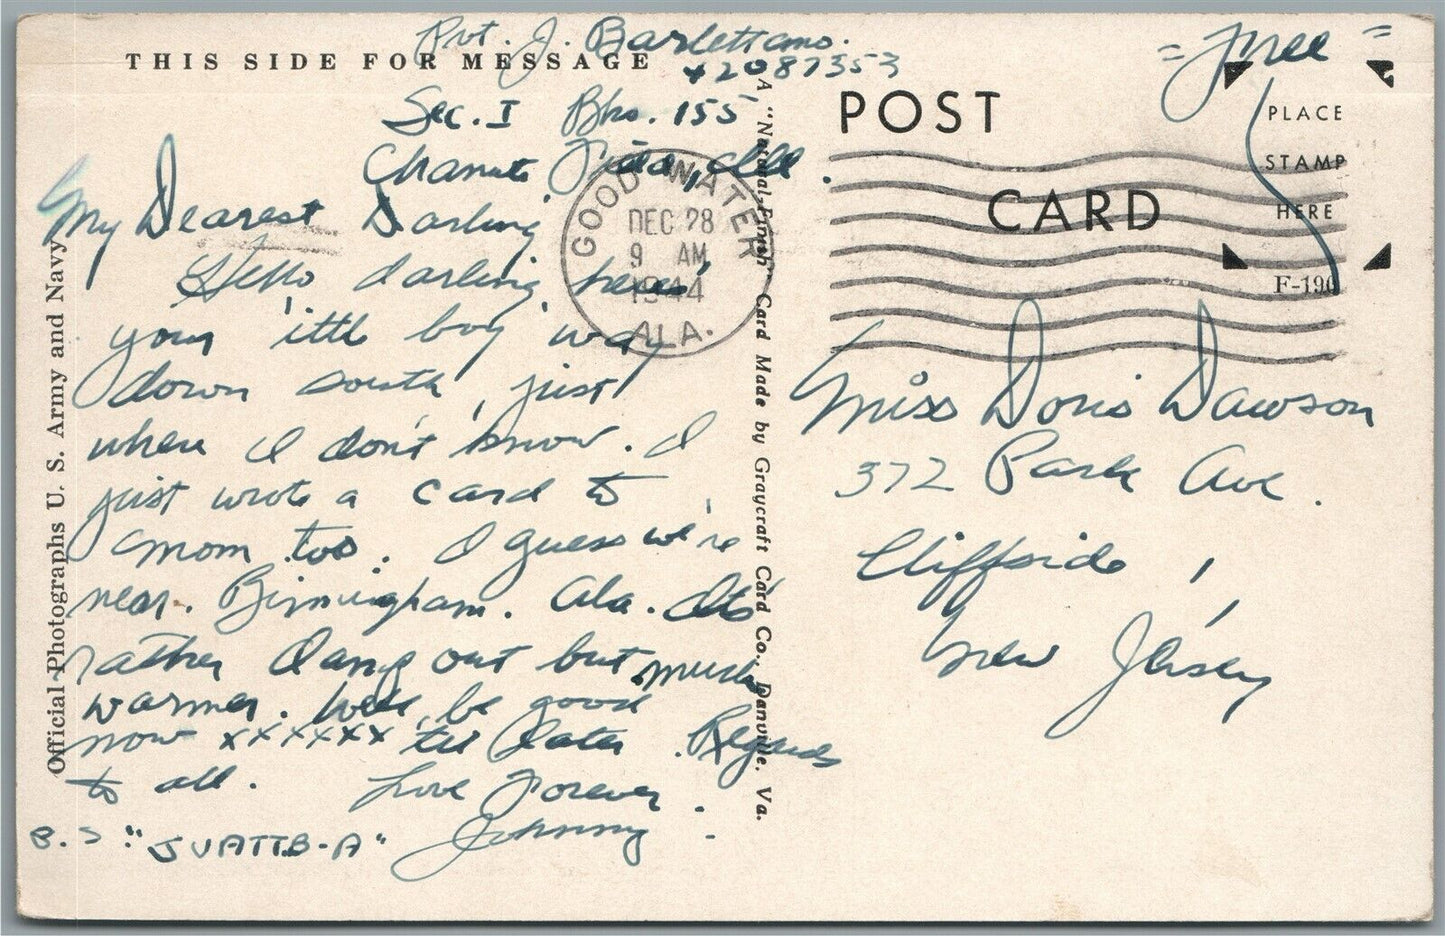 Pvt. J. Barlettano.
THIS SIDE FOR MESSAGE
Sec. I Bks. 155
Chanute Field, Ill.
My Dearest Darling
Hello darling, here's
your 'ittle boy way
down south, just
where I don't know. I
just wrote a card to
mom too. I guess we're
near. Birmingham. Ala. It's
rather damp out but much
warmer. Well, be good
now xxxxxxx 'till later. Regards
to all. Love Forever.
Johnny
"SVATTB-A"
Official Photographs U. S. Army and Navy
A "Natural-Finish" Card Made by Graycraft Card Co., Danville, Va.
GOOD WATER
DEC 28
9 AM
1944
ALA.
= Free =
POST
CARD
PLACE
STAMP
HERE
F-190
Miss Doris Dawson
372 Park Ave.
Cliffside,
New Jersey